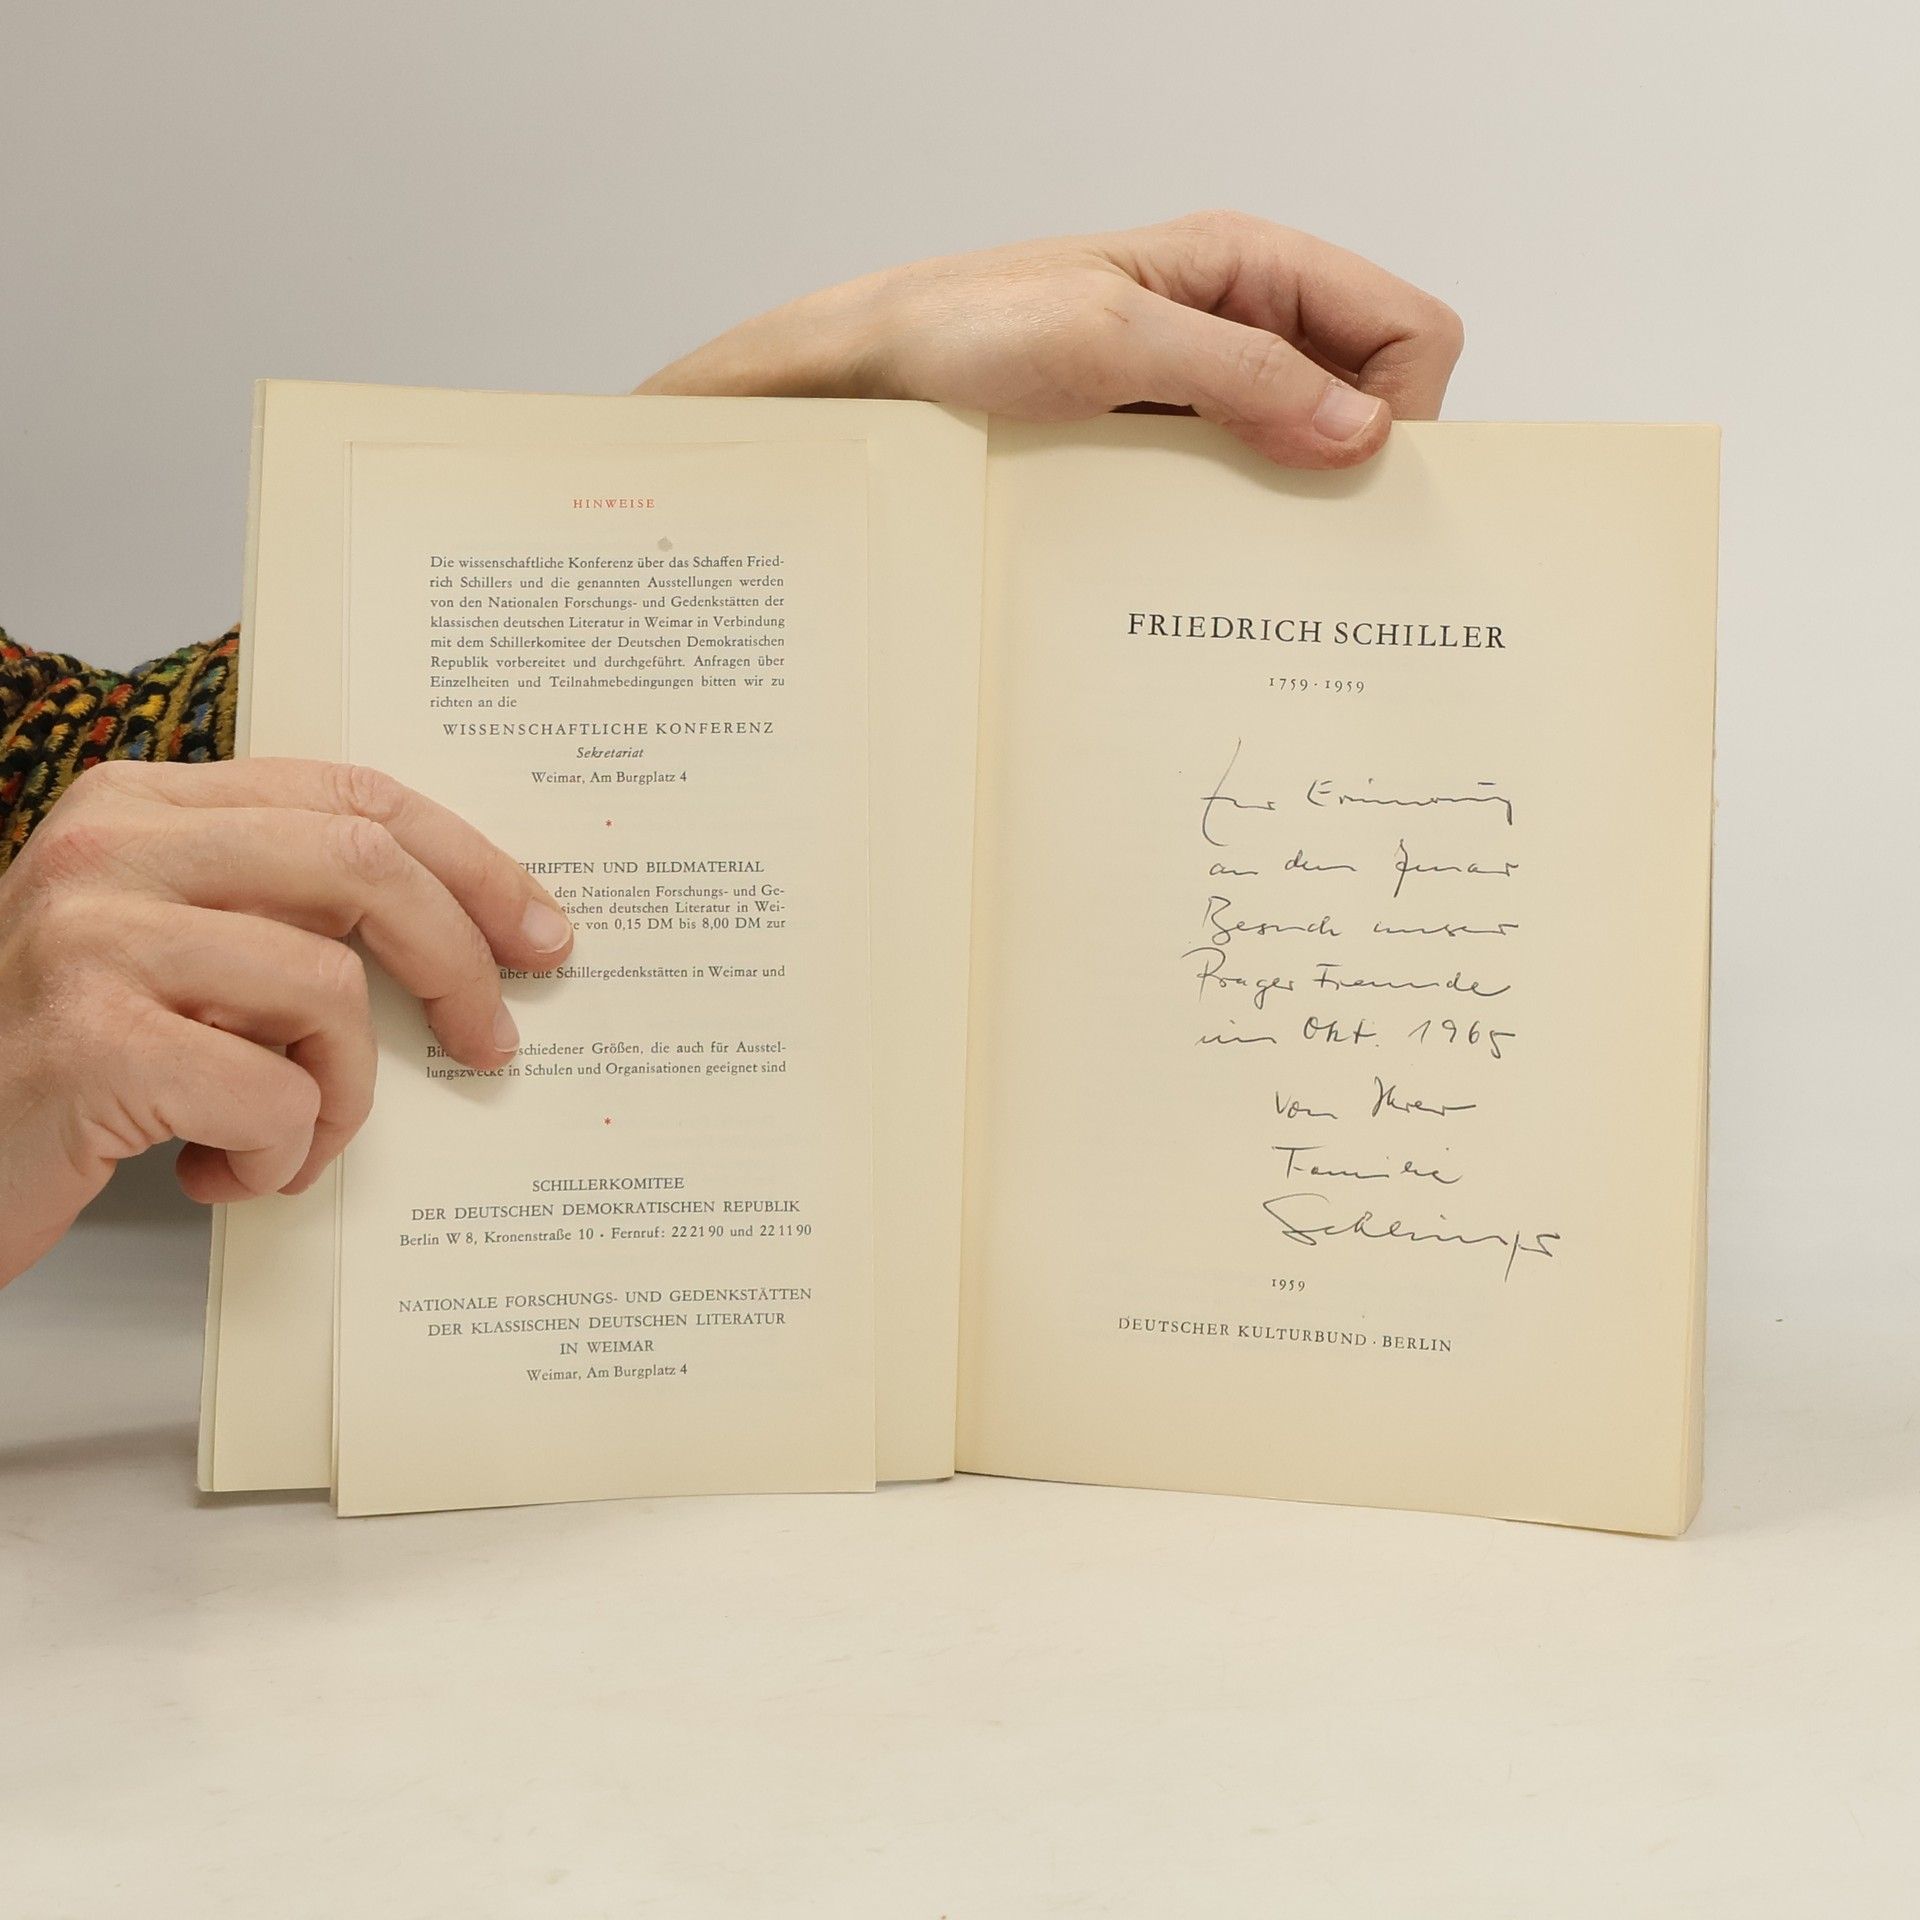 HINWEISE
Die wissenschaftliche Konferenz über das Schaffen Fried-
rich Schillers und die genannten Ausstellungen werden
von den Nationalen Forschungs- und Gedenkstätten der
klassischen deutschen Literatur in Weimar in Verbindung
mit dem Schillerkomitee der Deutschen Demokratischen
Republik vorbereitet und durchgeführt. Anfragen über
Einzelheiten und Teilnahmebedingungen bitten wir zu
richten an die
WISSENSCHAFTLICHE KONFERENZ
Sekretariat
Weimar, Am Burgplatz 4
*
CHRIFTEN UND BILDMATERIAL
den Nationalen Forschungs- und Ge-
sischen deutschen Literatur in Wei-
e von 0,15 DM bis 8,00 DM zur
über die Schillergedenkstätten in Weimar und
schiedener Größen, die auch für Ausstel-
lungszwecke in Schulen und Organisationen geeignet sind
*
SCHILLERKOMITEE
DER DEUTSCHEN DEMOKRATISCHEN REPUBLIK
Berlin W 8, Kronenstraße 10 · Fernruf: 22 21 90 und 22 11 90
NATIONALE FORSCHUNGS- UND GEDENKSTÄTTEN
DER KLASSISCHEN DEUTSCHEN LITERATUR
IN WEIMAR
Weimar, Am Burgplatz 4
FRIEDRICH SCHILLER
1759 · 1959
Zur Erinnerung
an den Jenaer
Besuch unserer
Prager Freunde
im Okt. 1965
von Ihrer
Familie
1959
DEUTSCHER KULTURBUND · BERLIN